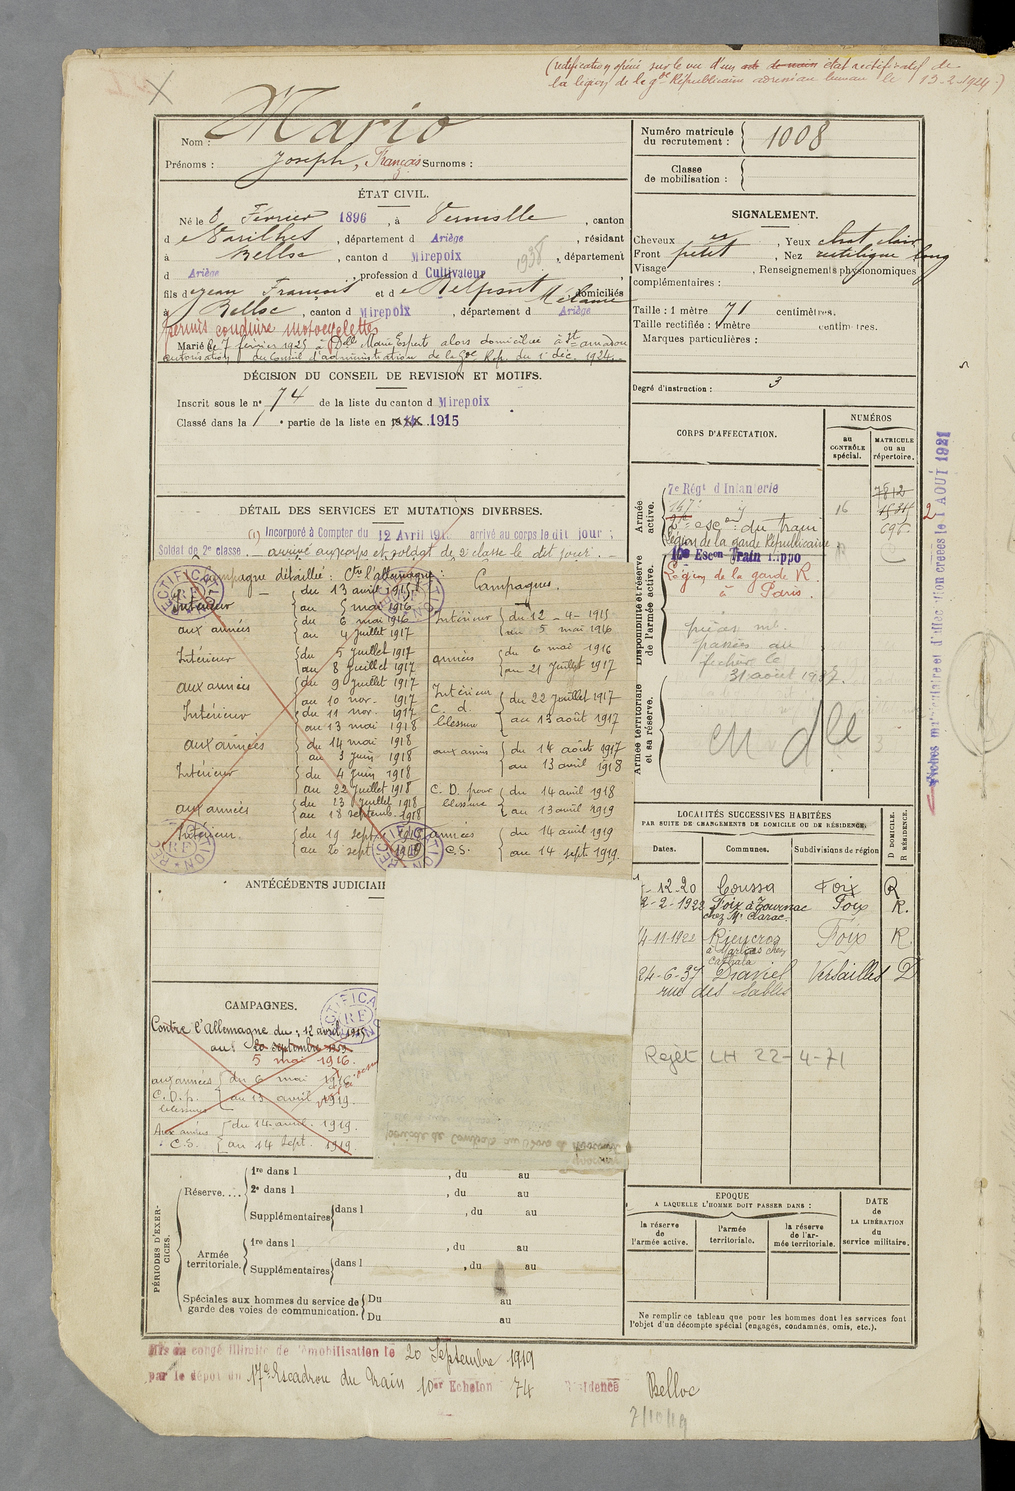 (rectification opérée sur le vu d'un état rectificatif de
la légion de la gde Républicaine 19-2-1924.)
Nom : Mario
Prénoms : Joseph, François Surnoms :
Numéro matricule
du recrutement : 1008
Classe
de mobilisation :
ÉTAT CIVIL.
Né le 8 Février 1896, à Vernolle, canton
d e Varilhes, département d Ariège, résidant
à Belloc, canton d Mirepoix, département
d Ariège, profession d Cultivateur
1938
fils de Jean François et de Delpont Mélanie domiciliés
à Belloc, canton d Mirepoix, département d Ariège
permis conduire motocyclettes
Marié le 7 février 1925 à Delle Marie Esperte alors domiciliée à St amadou
autorisation du Conseil d'administration de la Gde Rép. du 1er déc. 1924.
SIGNALEMENT.
Cheveux , Yeux chat clair
Front petit, Nez rectiligne long
Visage , Renseignements physionomiques
complémentaires :
Taille : 1 mètre 71 centimètres.
Taille rectifiée : 1 mètre centimètres.
Marques particulières :
Degré d'instruction : 3
DÉCISION DU CONSEIL DE REVISION ET MOTIFS.
Inscrit sous le n° 74 de la liste du canton d Mirepoix
Classé dans la 1e partie de la liste en 1915
DÉTAIL DES SERVICES ET MUTATIONS DIVERSES.
(1) Incorporé à Compter du 12 Avril 191 arrivé au corps le dit jour :
Soldat de 2e classe. arrivé au corps et soldat de 2e classe le dit jour.
Campagne détaillée : Ctre l'allemagne :
Intérieur du 13 avril 1915
au 5 mai 1916
aux armées du 6 mai 1916
au 4 juillet 1917
Intérieur du 5 juillet 1917
au 8 juillet 1917
aux armées du 9 juillet 1917
au 10 nov. 1917
Intérieur du 11 nov. 1917
au 13 mai 1918
aux armées du 14 mai 1918
au 3 juin 1918
Intérieur du 4 juin 1918
au 22 juillet 1918
aux armées du 23 juillet 1918
au 18 septemb. 1918
Intérieur. du 19 sept. 1918
au 20 sept. 1919
Campagnes.
Intérieur du 12-4-1915
au 5 mai 1916
armées du 6 mai 1916
au 21 juillet 1917
Intérieur du 22 juillet 1917
C. d.
blessure au 13 août 1917
aux armées du 14 août 1917
au 13 avril 1918
C. D. pour du 14 avril 1918
blessure au 13 avril 1919
armées du 14 avril 1919
C.S. au 14 sept. 1919.
RECTIFICATION
RF
ANTÉCÉDENTS JUDICIAI
CAMPAGNES.
Contre l'Allemagne du : 12 avril 1915
au : 20 septembre 1919
5 mai 1916.
aux armées du 6 mai 1916
C.D.p. blessure au 13 avril 1919.
Aux armées du 14 avril. 1919.
: C.S. au 14 Sept. 1919
CORPS D'AFFECTATION.
NUMÉROS
au CONTRÔLE spécial.
MATRICULE ou au répertoire.
Armée active.
7e Régt d'Infanterie 7812
147e 16
esc.on du train 695
Légion de la garde Républicaine
Disponibilité et réserve de l'armée active.
10e Escon Train Hippo
Légion de la garde R.
à Paris.
pièces mt.
passées au
fichier le
31 août 1937.
Armée territoriale et sa réserve.
Fiches matriculaires et d'affectation créées le 1 AOUT 1921
2
LOCALITÉS SUCCESSIVES HABITÉES
PAR SUITE DE CHANGEMENTS DE DOMICILE OU DE RÉSIDENCE.
Dates. Communes. Subdivisions de région D DOMICILE. R RÉSIDENCE.
-12-20 Coussa Foix R
2-2-1922 Foix à Tournac Foix R.
chez Mr Clarac.
4-11-1922 Rieucros Foix R
24-6-37 Draveil Versailles D
rue des Sables
Rejet LH 22-4-71
PÉRIODES D'EXERCICES.
Réserve.... 1re dans l , du au
2e dans l , du au
Supplémentaires dans l , du au
Armée territoriale. 1re dans l , du au
Supplémentaires dans l , du au
Spéciales aux hommes du service de Du au
garde des voies de communication. Du au
EPOQUE
A LAQUELLE L'HOMME DOIT PASSER DANS :
la réserve de l'armée active.
l'armée territoriale.
la réserve de l'armée territoriale.
DATE de LA LIBÉRATION du service militaire.
Ne remplir ce tableau que pour les hommes dont les services font
l'objet d'un décompte spécial (engagés, condamnés, omis, etc.).
Mis en congé illimité de démobilisation le 20 Septembre 1919
par le dépôt du 17e Escadron du Train 10er Echelon 74 Résidence Belloc
7/10/19